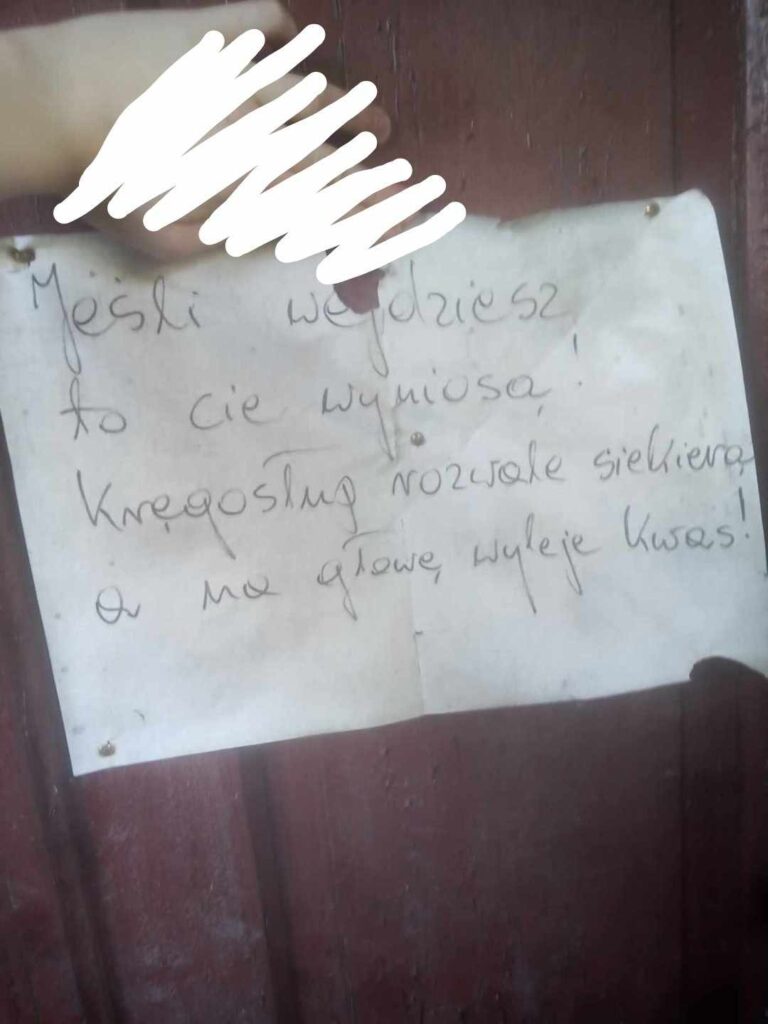 Jeśli wejdziesz
to cie wyniosą!
Kręgosłup rozwale siekierą
a na głowę wyleje kwas!